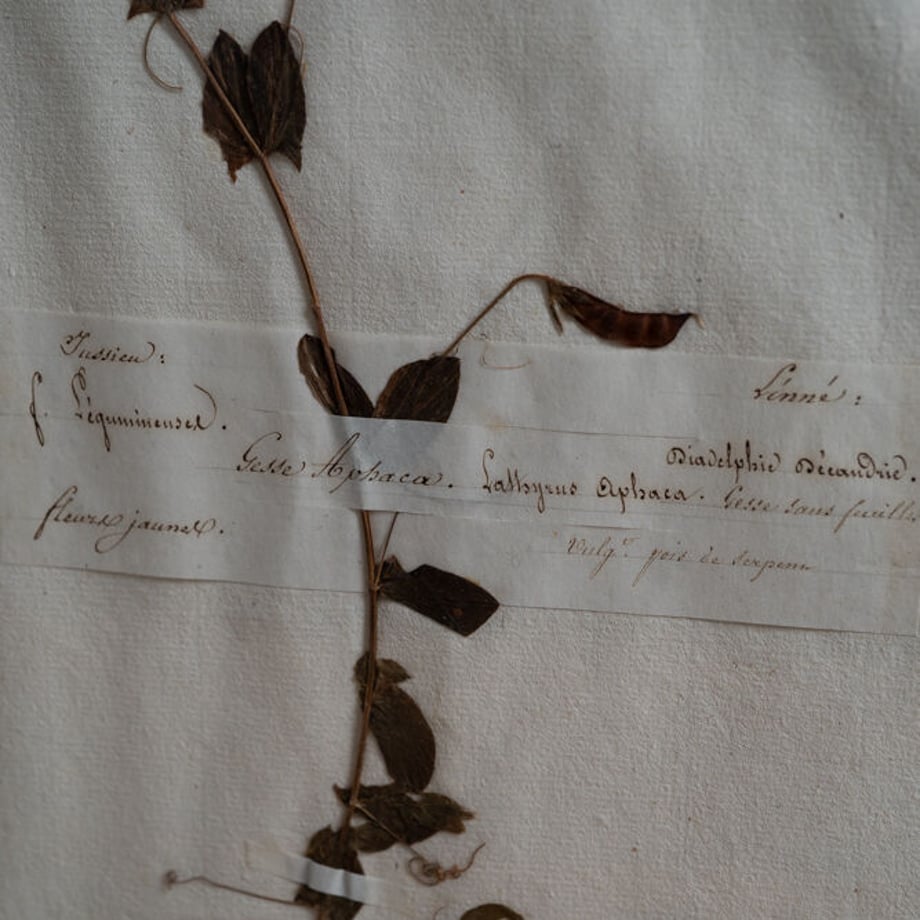 Jussieu :
f. Légumineuses.
Gesse Aphaca.
fleurs jaunes.
Linné :
Diadelphie Décandrie.
Lathyrus Aphaca. Gesse sans feuille
Vulg.t pois de serpent